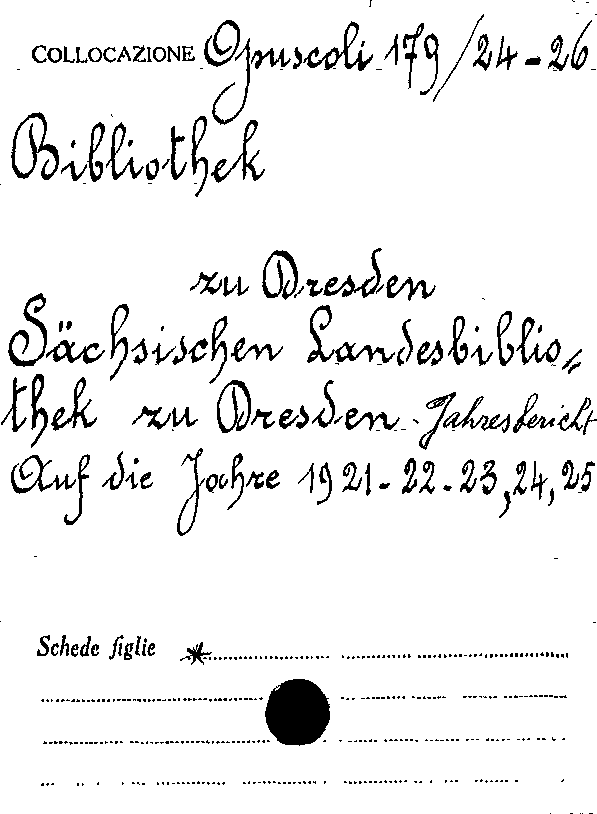 COLLOCAZIONE Opuscoli 179/24-26
Bibliothek
zu Dresden
Sächsischen Landesbiblio„
thek zu Dresden. Jahresbericht
Auf die Jahre 1921-22-23,24,25
Schede figlie *